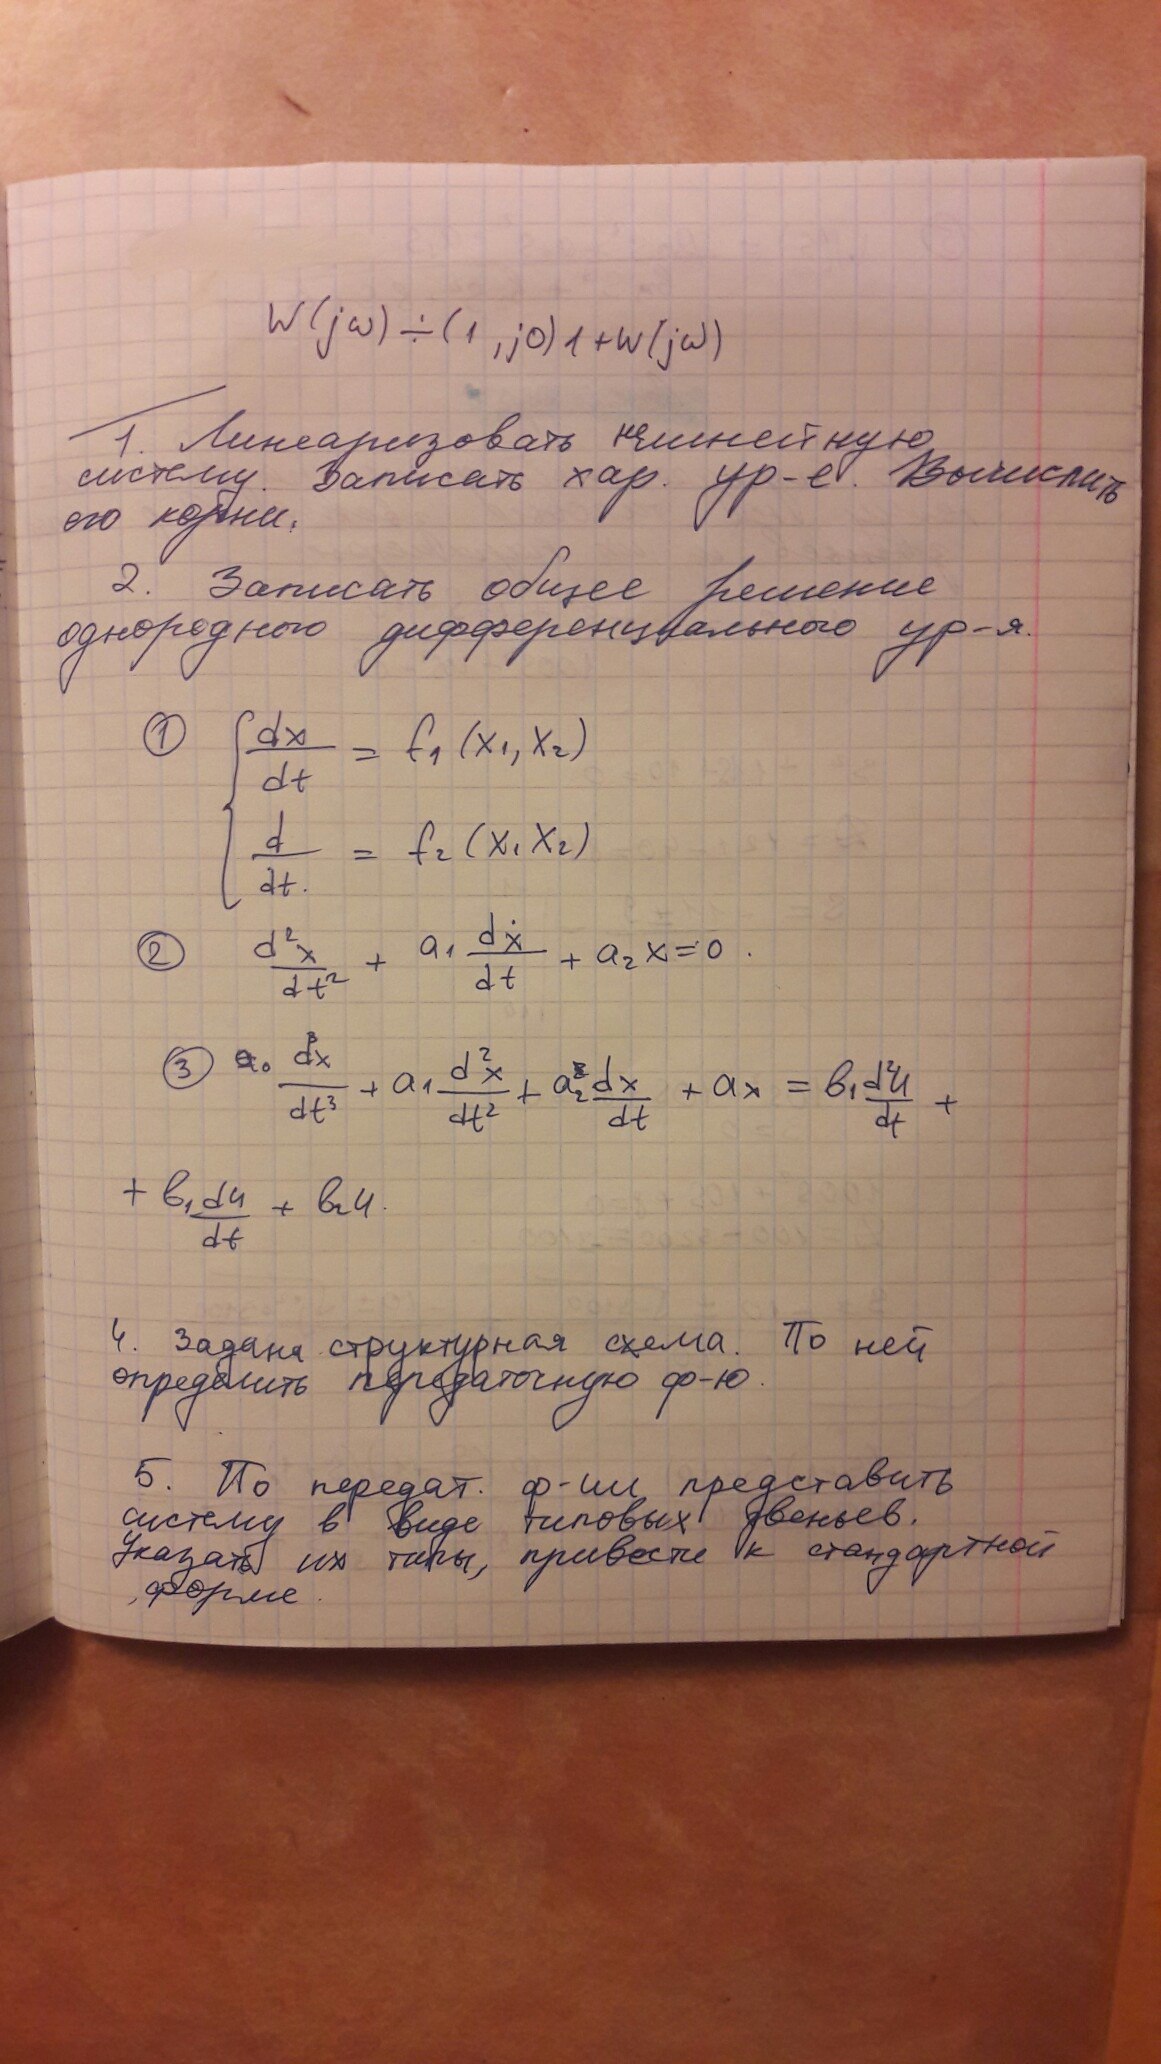 W(jω) ÷ (1, j0) 1 + W(jω)
1. Линеаризовать нелинейную
систему. Записать хар. ур-е. Вычислить
его корни.
2. Записать общее решение
однородного дифференциального ур-я.
① { dx/dt = f₁(x₁, x₂)
d/dt. = f₂(x₁ x₂)
② d²x/dt² + a₁ dx/dt + a₂x = 0.
③ a₀ d³x/dt³ + a₁ d²x/dt² + a₂ dx/dt + ax = b₁ d²u/dt +
+ b₁ du/dt + b₂u.
4. Задана структурная схема. По ней
определить передаточную ф-ю.
5. По передат. ф-ии представить
систему в виде типовых звеньев.
Указать их типы, привести к стандартной
форме.